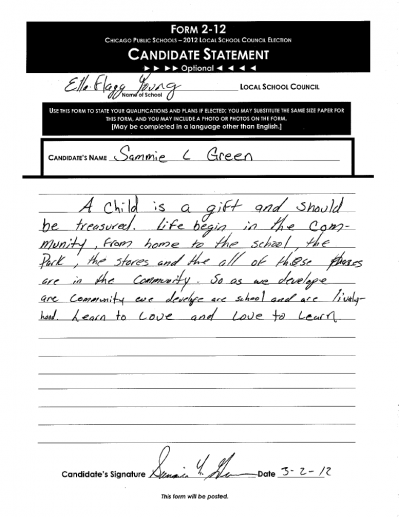 FORM 2-12
CHICAGO PUBLIC SCHOOLS – 2012 LOCAL SCHOOL COUNCIL ELECTION
CANDIDATE STATEMENT
► ► ► ► Optional ◄ ◄ ◄ ◄
Ella Flagg Young LOCAL SCHOOL COUNCIL
Name of School
USE THIS FORM TO STATE YOUR QUALIFICATIONS AND PLANS IF ELECTED; YOU MAY SUBSTITUTE THE SAME SIZE PAPER FOR
THIS FORM, AND YOU MAY INCLUDE A PHOTO OR PHOTOS ON THE FORM.
[May be completed in a language other than English.]
CANDIDATE'S NAME Sammie L Green
A Child is a gift and should
be treasured. Life begin in the Com-
munity, from home to the school, the
Park, the stores and the all of these places
are in the Community. So as we develope
are Community we develope are school and are lively-
hood. Learn to Love and Love to Learn
Candidate's Signature Sammie L. Green Date 3-2-12
This form will be posted.